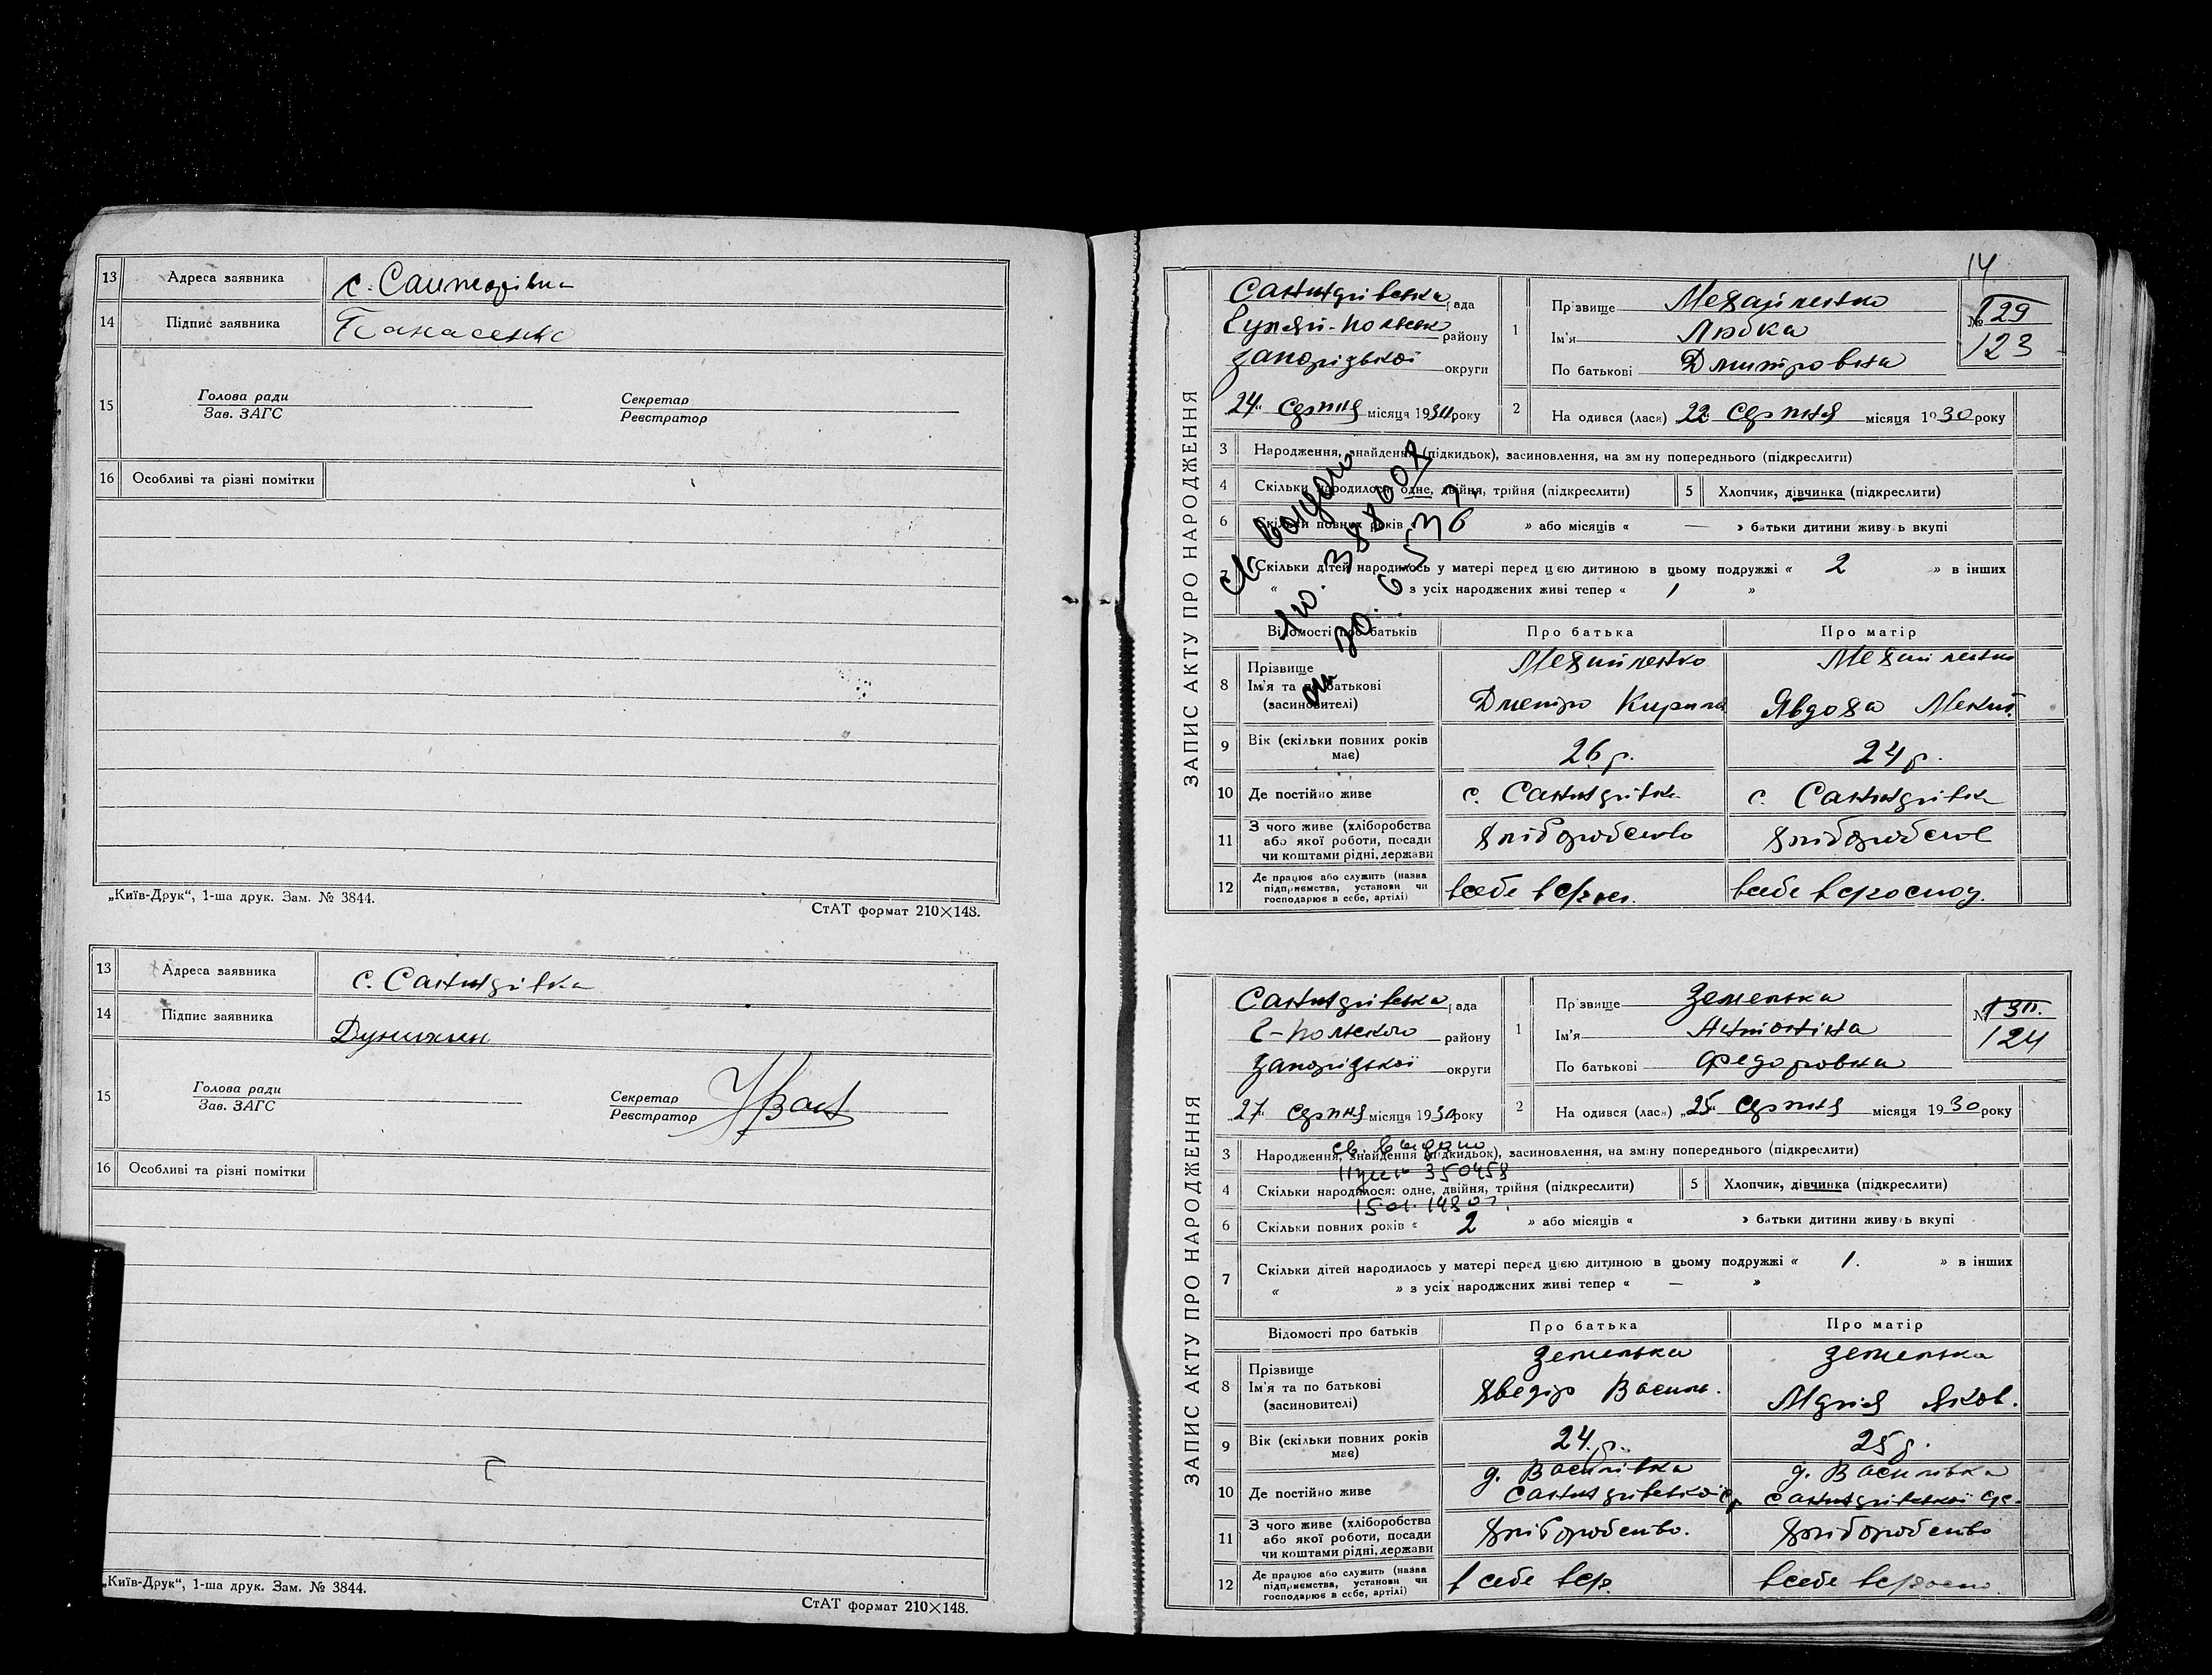 13 Адреса заявника с. Санжарівка
14 Підпис заявника Панасенко
15 Голова ради
Зав. ЗАГС
Секретар
Реєстратор
16 Особливі та різні помітки
„Київ-Друк“, 1-ша друк. Зам. № 3844.
СтАТ формат 210×148.
13 Адреса заявника
14 Підпис заявника
15 Голова ради
Зав. ЗАГС
Секретар
Реєстратор
16 Особливі та різні помітки
„Київ-Друк“, 1-ша друк. Зам. № 3844.
СтАТ формат 210×148.
14
ЗАПИС АКТУ ПРО НАРОДЖЕННЯ
рада
району
округи
24 серпня місяця 1930 року
1 Прізвище Михайленко
Ім'я Любка
По батькові Дмитровна
№ 129
123
2 Народився (лася) 22 серпня місяця 1930 року
3 Народження, знайдення (підкидьок), засиновлення, на зміну попереднього (підкреслити)
4 Скільки народилося: одне, двійня, трійня (підкреслити)
5 Хлопчик, дівчинка (підкреслити)
6 Скільки повних років « 6 » або місяців « — » батьки дитини живуть вкупі
7 Скільки дітей народилось у матері перед цією дитиною в цьому подружжі « 2 » в інших
« » з усіх народжених живі тепер « 1 »
св выдано
388008
Відомості про батьків Про батька Про матір
8 Прізвище
Ім'я та по батькові
(засиновителі)
Михайленко Михайленко
Дметро Кирил Явдоха
9 Вік (скільки повних років має) 26 р. 24 р.
10 Де постійно живе
11 З чого живе (хліборобства або якої роботи, посади чи коштами рідні, держави хліборобство хліборобств
12 Де працює або служить (назва підприємства, установи чи господарює в себе, артілі) в себе в себе в господ.
ЗАПИС АКТУ ПРО НАРОДЖЕННЯ
рада
Г-Польского району
округи
27 серпня місяця 1930 року
1 Прізвище Земелька
Ім'я Антоніна
По батькові Федоровна
№ 130.
124
2 Народився (лася) „25“ серпня місяця 1930 року
3 Народження, знайдення (підкидьок), засиновлення, на зміну попереднього (підкреслити)
св. выдано
350458
4 Скільки народилося: одне, двійня, трійня (підкреслити)
5 Хлопчик, дівчинка (підкреслити)
15.01.1980г.
6 Скільки повних років « 2 » або місяців « » батьки дитини живуть вкупі
7 Скільки дітей народилось у матері перед цією дитиною в цьому подружжі « 1. » в інших
« » з усіх народжених живі тепер « — »
Відомості про батьків Про батька Про матір
8 Прізвище
Ім'я та по батькові
(засиновителі)
Земелька Земелька
Хведір Василь. Марія Яков.
9 Вік (скільки повних років має) 24. р. 25 р.
10 Де постійно живе д. Василівка д. Василівка
11 З чого живе (хліборобства або якої роботи, посади чи коштами рідні, держави хліборобство. хліборобство
12 Де працює або служить (назва підприємства, установи чи господарює в себе, артілі) в себе в себе